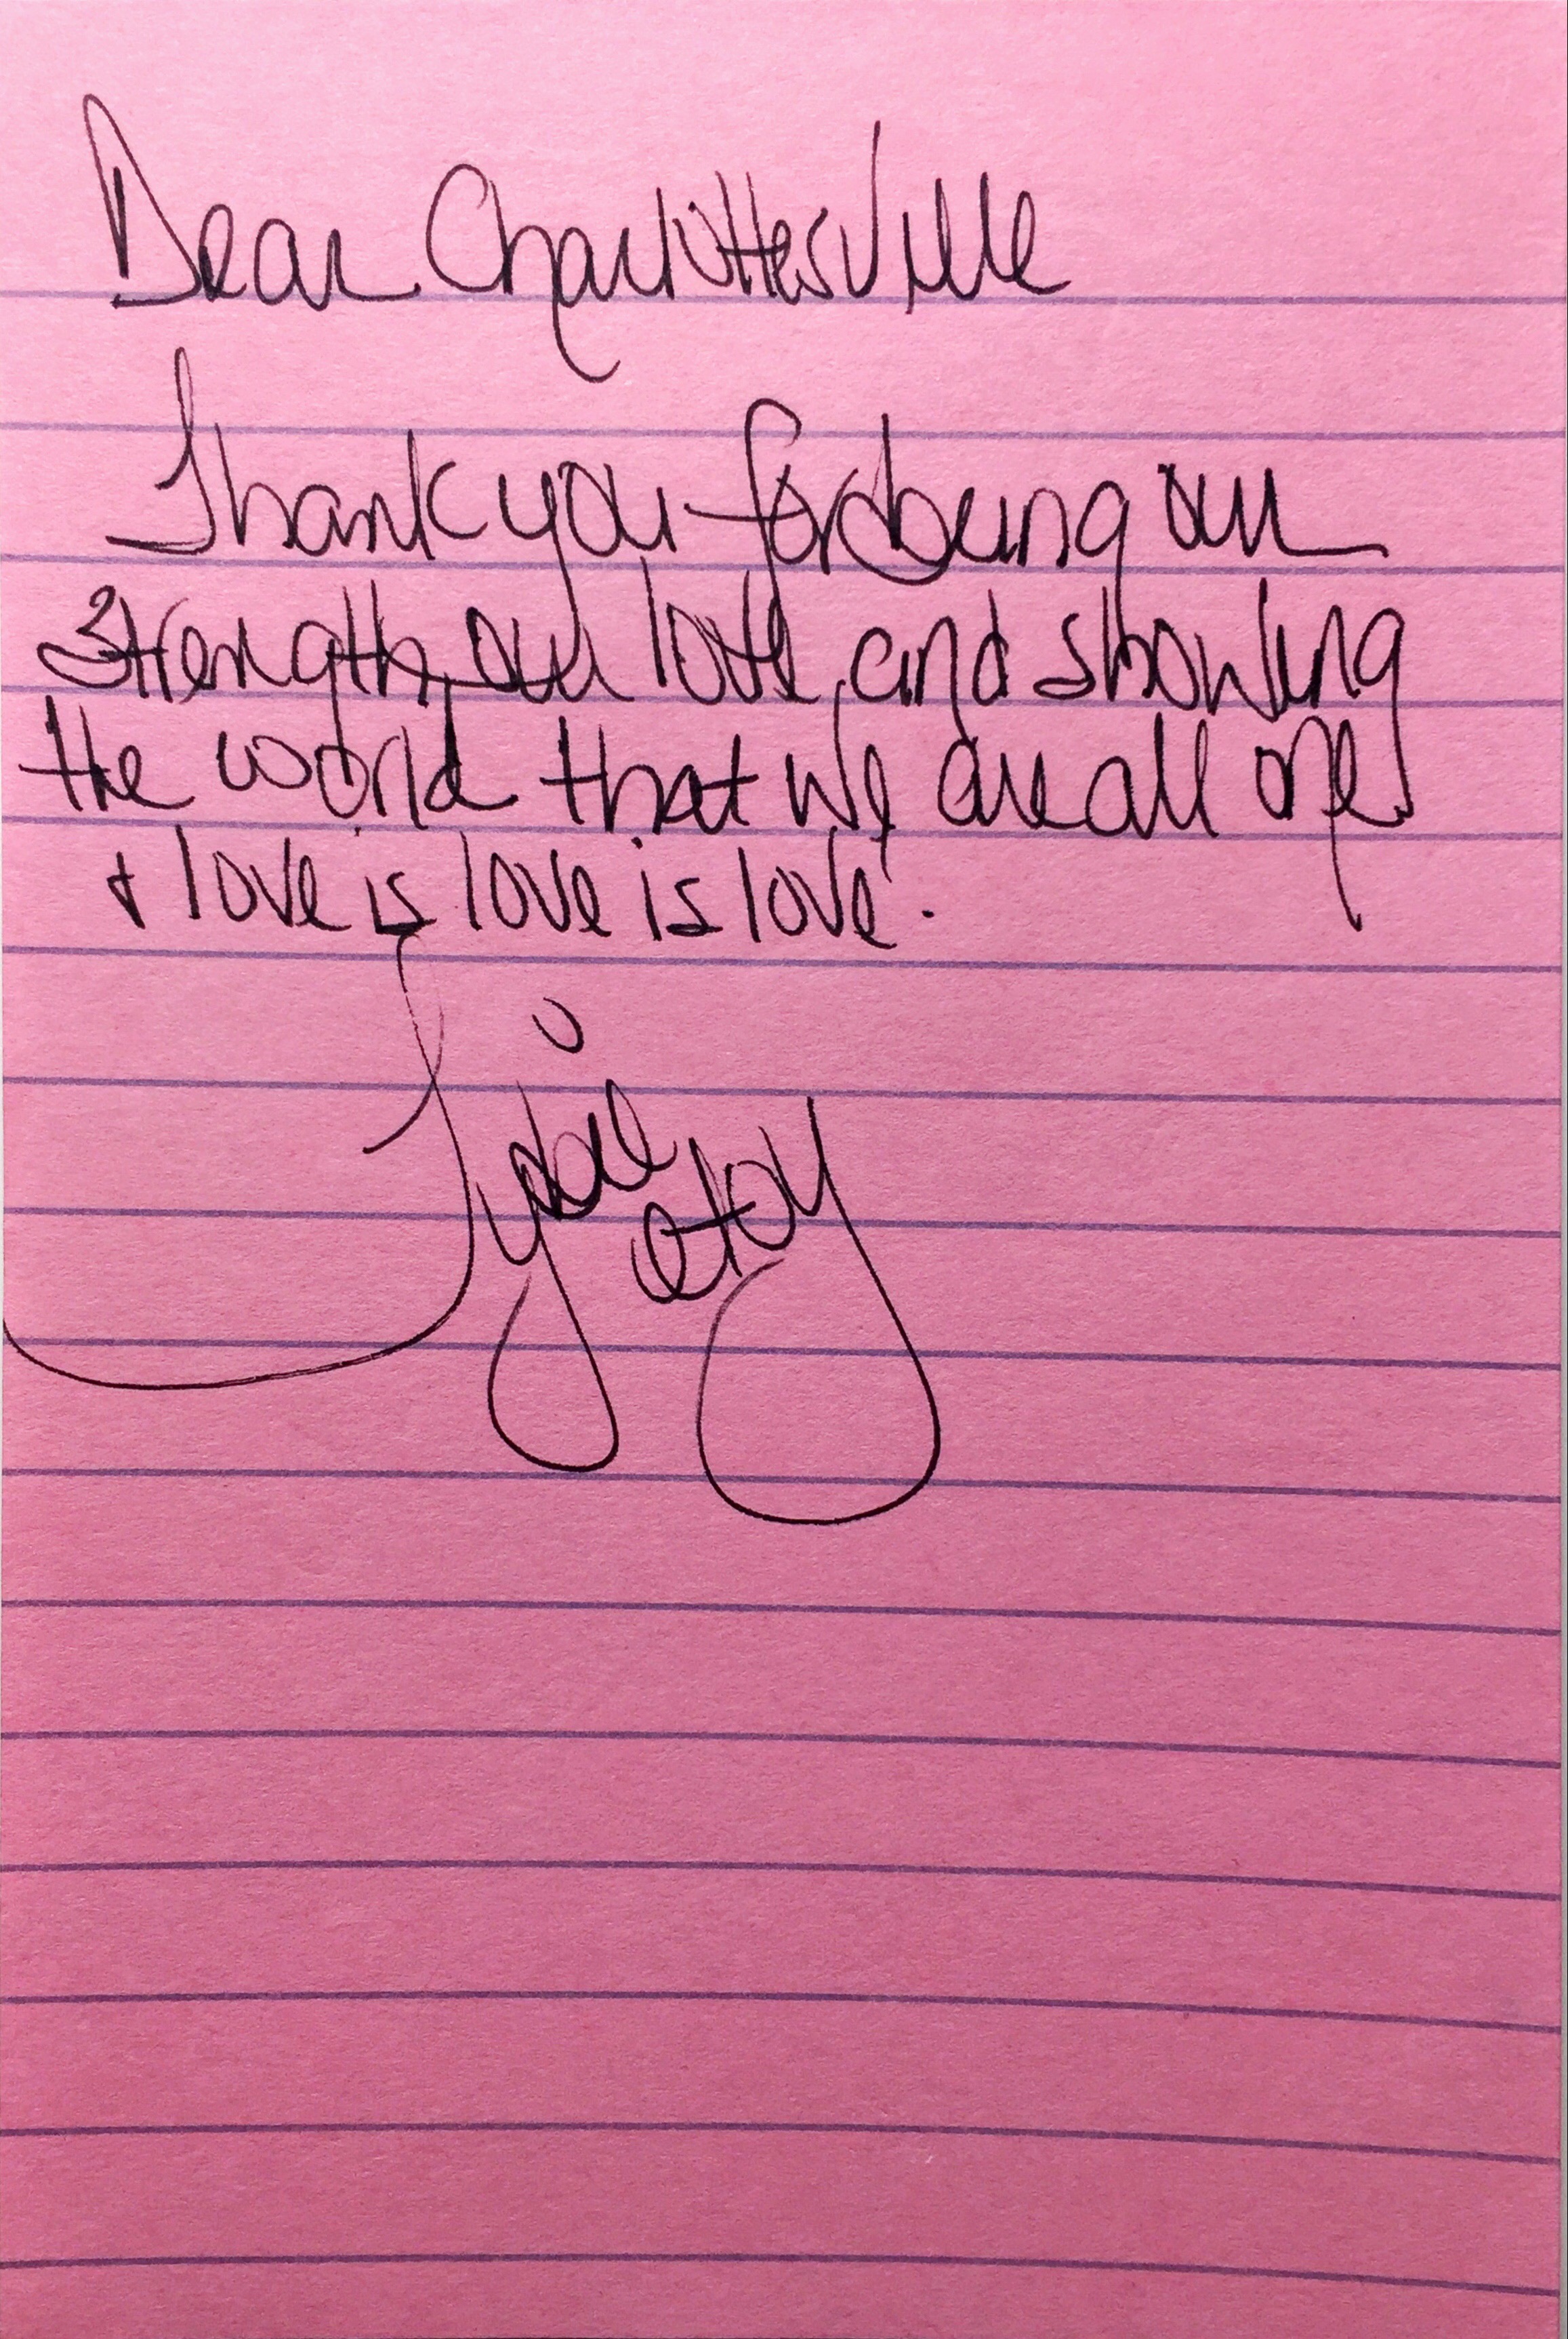 Dear Charlottesville
Thank you for being our
strength, our love, and showing
the world that we are all one
& love is love is love.